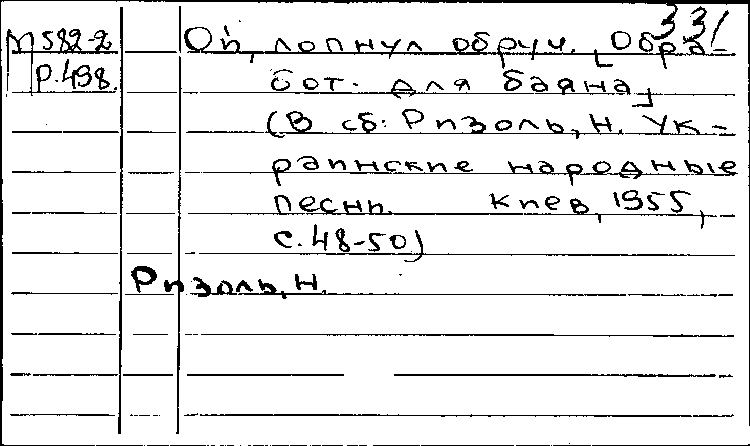 331
М 582-2
Р.498.
Ой, лопнул обруч. [Обра-
бот. для баяна]
(В сб: Ризоль, Н. Ук-
раинские народные
песни. Киев, 1955,
с. 48-50)
Ризоль, Н.